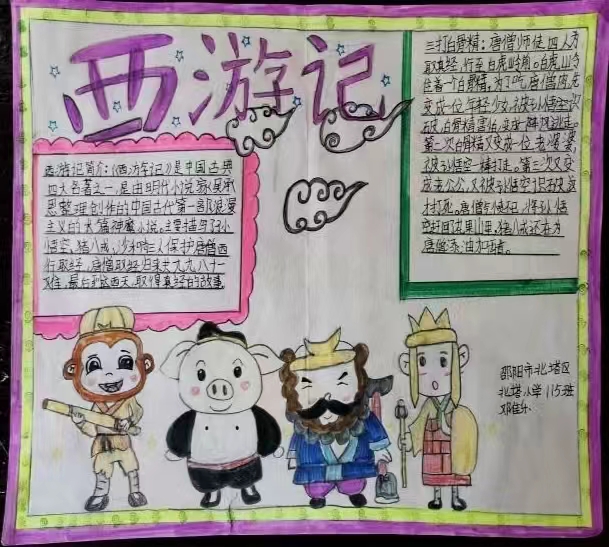 西游记
西游记简介:《西游记》是中国古典
四大名著之一,是由明代小说家吴承
恩整理创作的中国古代第一部浪漫
主义的长篇神魔小说。主要描写了孙
悟空、猪八戒、沙和尚三人保护唐僧西
行取经,唐僧取经归来共九九八十一
难,最后到达西天,取得真经的故事
三打白骨精:唐僧师徒四人为
取真经,行至白虎岭前。白虎山
住着一个白骨精,为了吃唐僧肉,先
变成一位年轻少女,被孙悟空识
破,白骨精害怕,变成一阵风逃走。
第二次白骨精又变成一位老婆婆,
被孙悟空一棒打走。第三次又变
成老公公,又被孙悟空识破
打死。唐僧
赶回花果山里,猪八戒还在为
唐僧添油加醋。
邵阳市北塔区
北塔小学115班
邓佳乐